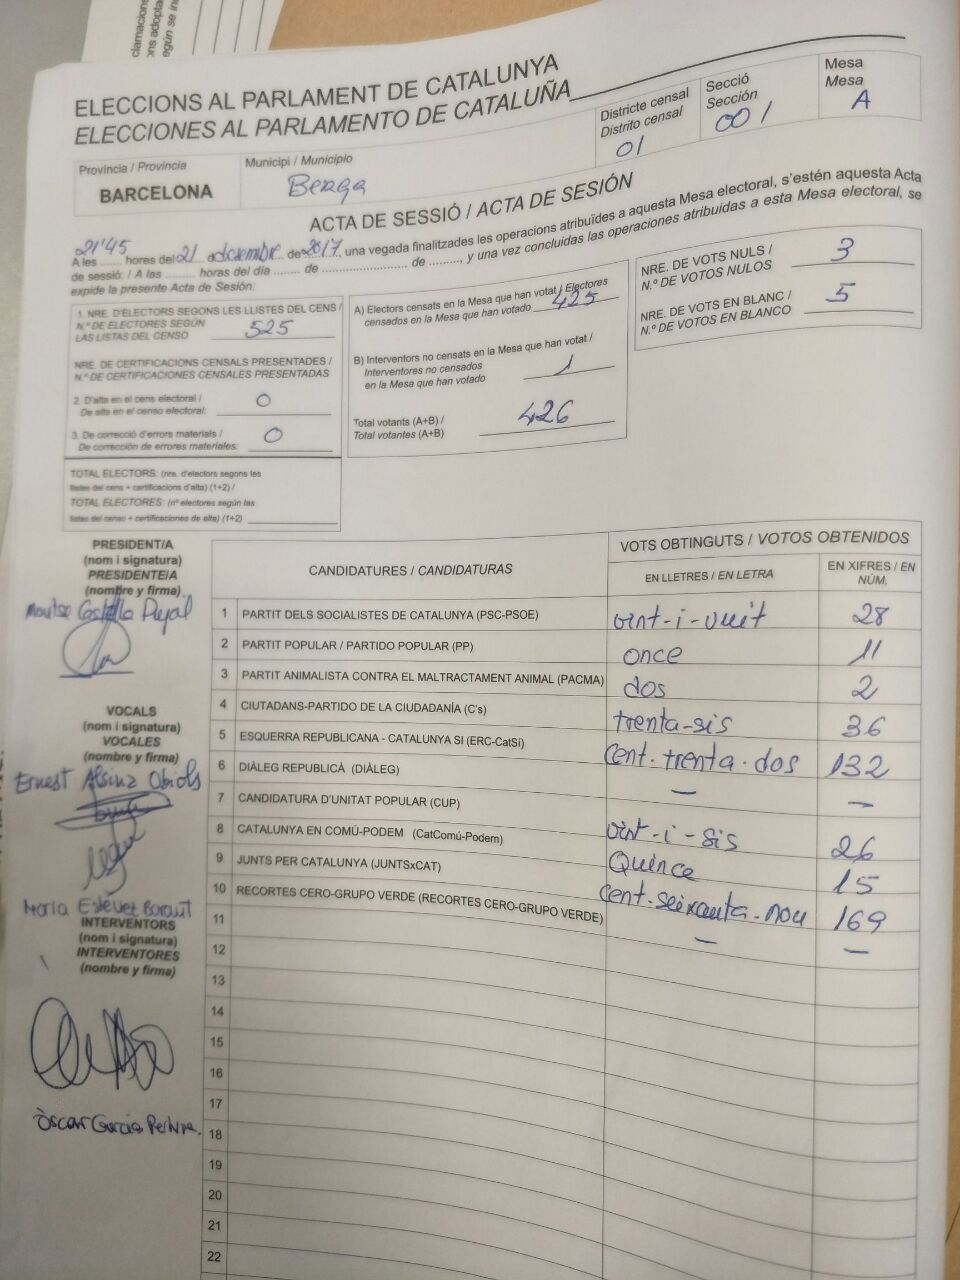 ELECCIONS AL PARLAMENT DE CATALUNYA
ELECCIONES AL PARLAMENTO DE CATALUÑA
Districte censal
Distrito censal
01
Secció
Sección
001
Mesa
Mesa
A
Província / Provincia
BARCELONA
Municipi / Municipio
Berga
ACTA DE SESSIÓ / ACTA DE SESIÓN
A les 21'45 hores del 21 de desembre de 2017, una vegada finalitzades les operacions atribuïdes a aquesta Mesa electoral, s'estén aquesta Acta
de sessió: / A las ........ horas del día ........ de ........................ de .........., y una vez concluidas las operaciones atribuidas a esta Mesa electoral, se
expide la presente Acta de Sesión:
1. NRE. D'ELECTORS SEGONS LES LLISTES DEL CENS /
N.º DE ELECTORES SEGÚN
LAS LISTAS DEL CENSO 525
NRE. DE CERTIFICACIONS CENSALS PRESENTADES /
N.º DE CERTIFICACIONES CENSALES PRESENTADAS
2. D'alta en el cens electoral /
De alta en el censo electoral: 0
3. De correcció d'errors materials /
De corrección de errores materiales: 0
TOTAL ELECTORS: (nre. d'electors segons les
llistes del cens + certificacions d'alta) (1+2) /
TOTAL ELECTORES: (nº electores según las
listas del censo + certificaciones de alta) (1+2)
A) Electors censats en la Mesa que han votat / Electores
censados en la Mesa que han votado 425
B) Interventors no censats en la Mesa que han votat /
Interventores no censados
en la Mesa que han votado 1
Total votants (A+B) /
Total votantes (A+B) 426
NRE. DE VOTS NULS /
N.º DE VOTOS NULOS 3
NRE. DE VOTS EN BLANC /
N.º DE VOTOS EN BLANCO 5
PRESIDENT/A
(nom i signatura)
PRESIDENTE/A
(nombre y firma)
Montse Castella Pujal
VOCALS
(nom i signatura)
VOCALES
(nombre y firma)
Ernest Alsina Obiols
Maria Estévez Baraut
INTERVENTORS
(nom i signatura)
INTERVENTORES
(nombre y firma)
Òscar García
CANDIDATURES / CANDIDATURAS
VOTS OBTINGUTS / VOTOS OBTENIDOS
EN LLETRES / EN LETRA
EN XIFRES / EN NÚM.
1 PARTIT DELS SOCIALISTES DE CATALUNYA (PSC-PSOE) vint-i-vuit 28
2 PARTIT POPULAR / PARTIDO POPULAR (PP) once 11
3 PARTIT ANIMALISTA CONTRA EL MALTRACTAMENT ANIMAL (PACMA) dos 2
4 CIUTADANS-PARTIDO DE LA CIUDADANÍA (C's) trenta-sis 36
5 ESQUERRA REPUBLICANA - CATALUNYA SI (ERC-CatSí) Cent-trenta-dos 132
6 DIÀLEG REPUBLICÀ (DIÀLEG) — —
7 CANDIDATURA D'UNITAT POPULAR (CUP) vint-i-sis 26
8 CATALUNYA EN COMÚ-PODEM (CatComú-Podem) Quince 15
9 JUNTS PER CATALUNYA (JUNTSxCAT) Cent-seixanta-nou 169
10 RECORTES CERO-GRUPO VERDE (RECORTES CERO-GRUPO VERDE) — —
11
12
13
14
15
16
17
18
19
20
21
22